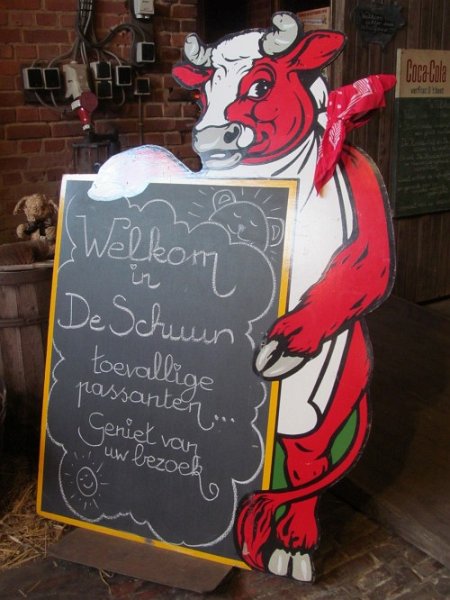 Welkom
in
De Schuur
toevallige
passanten...
Geniet van
uw bezoek
Coca-Cola